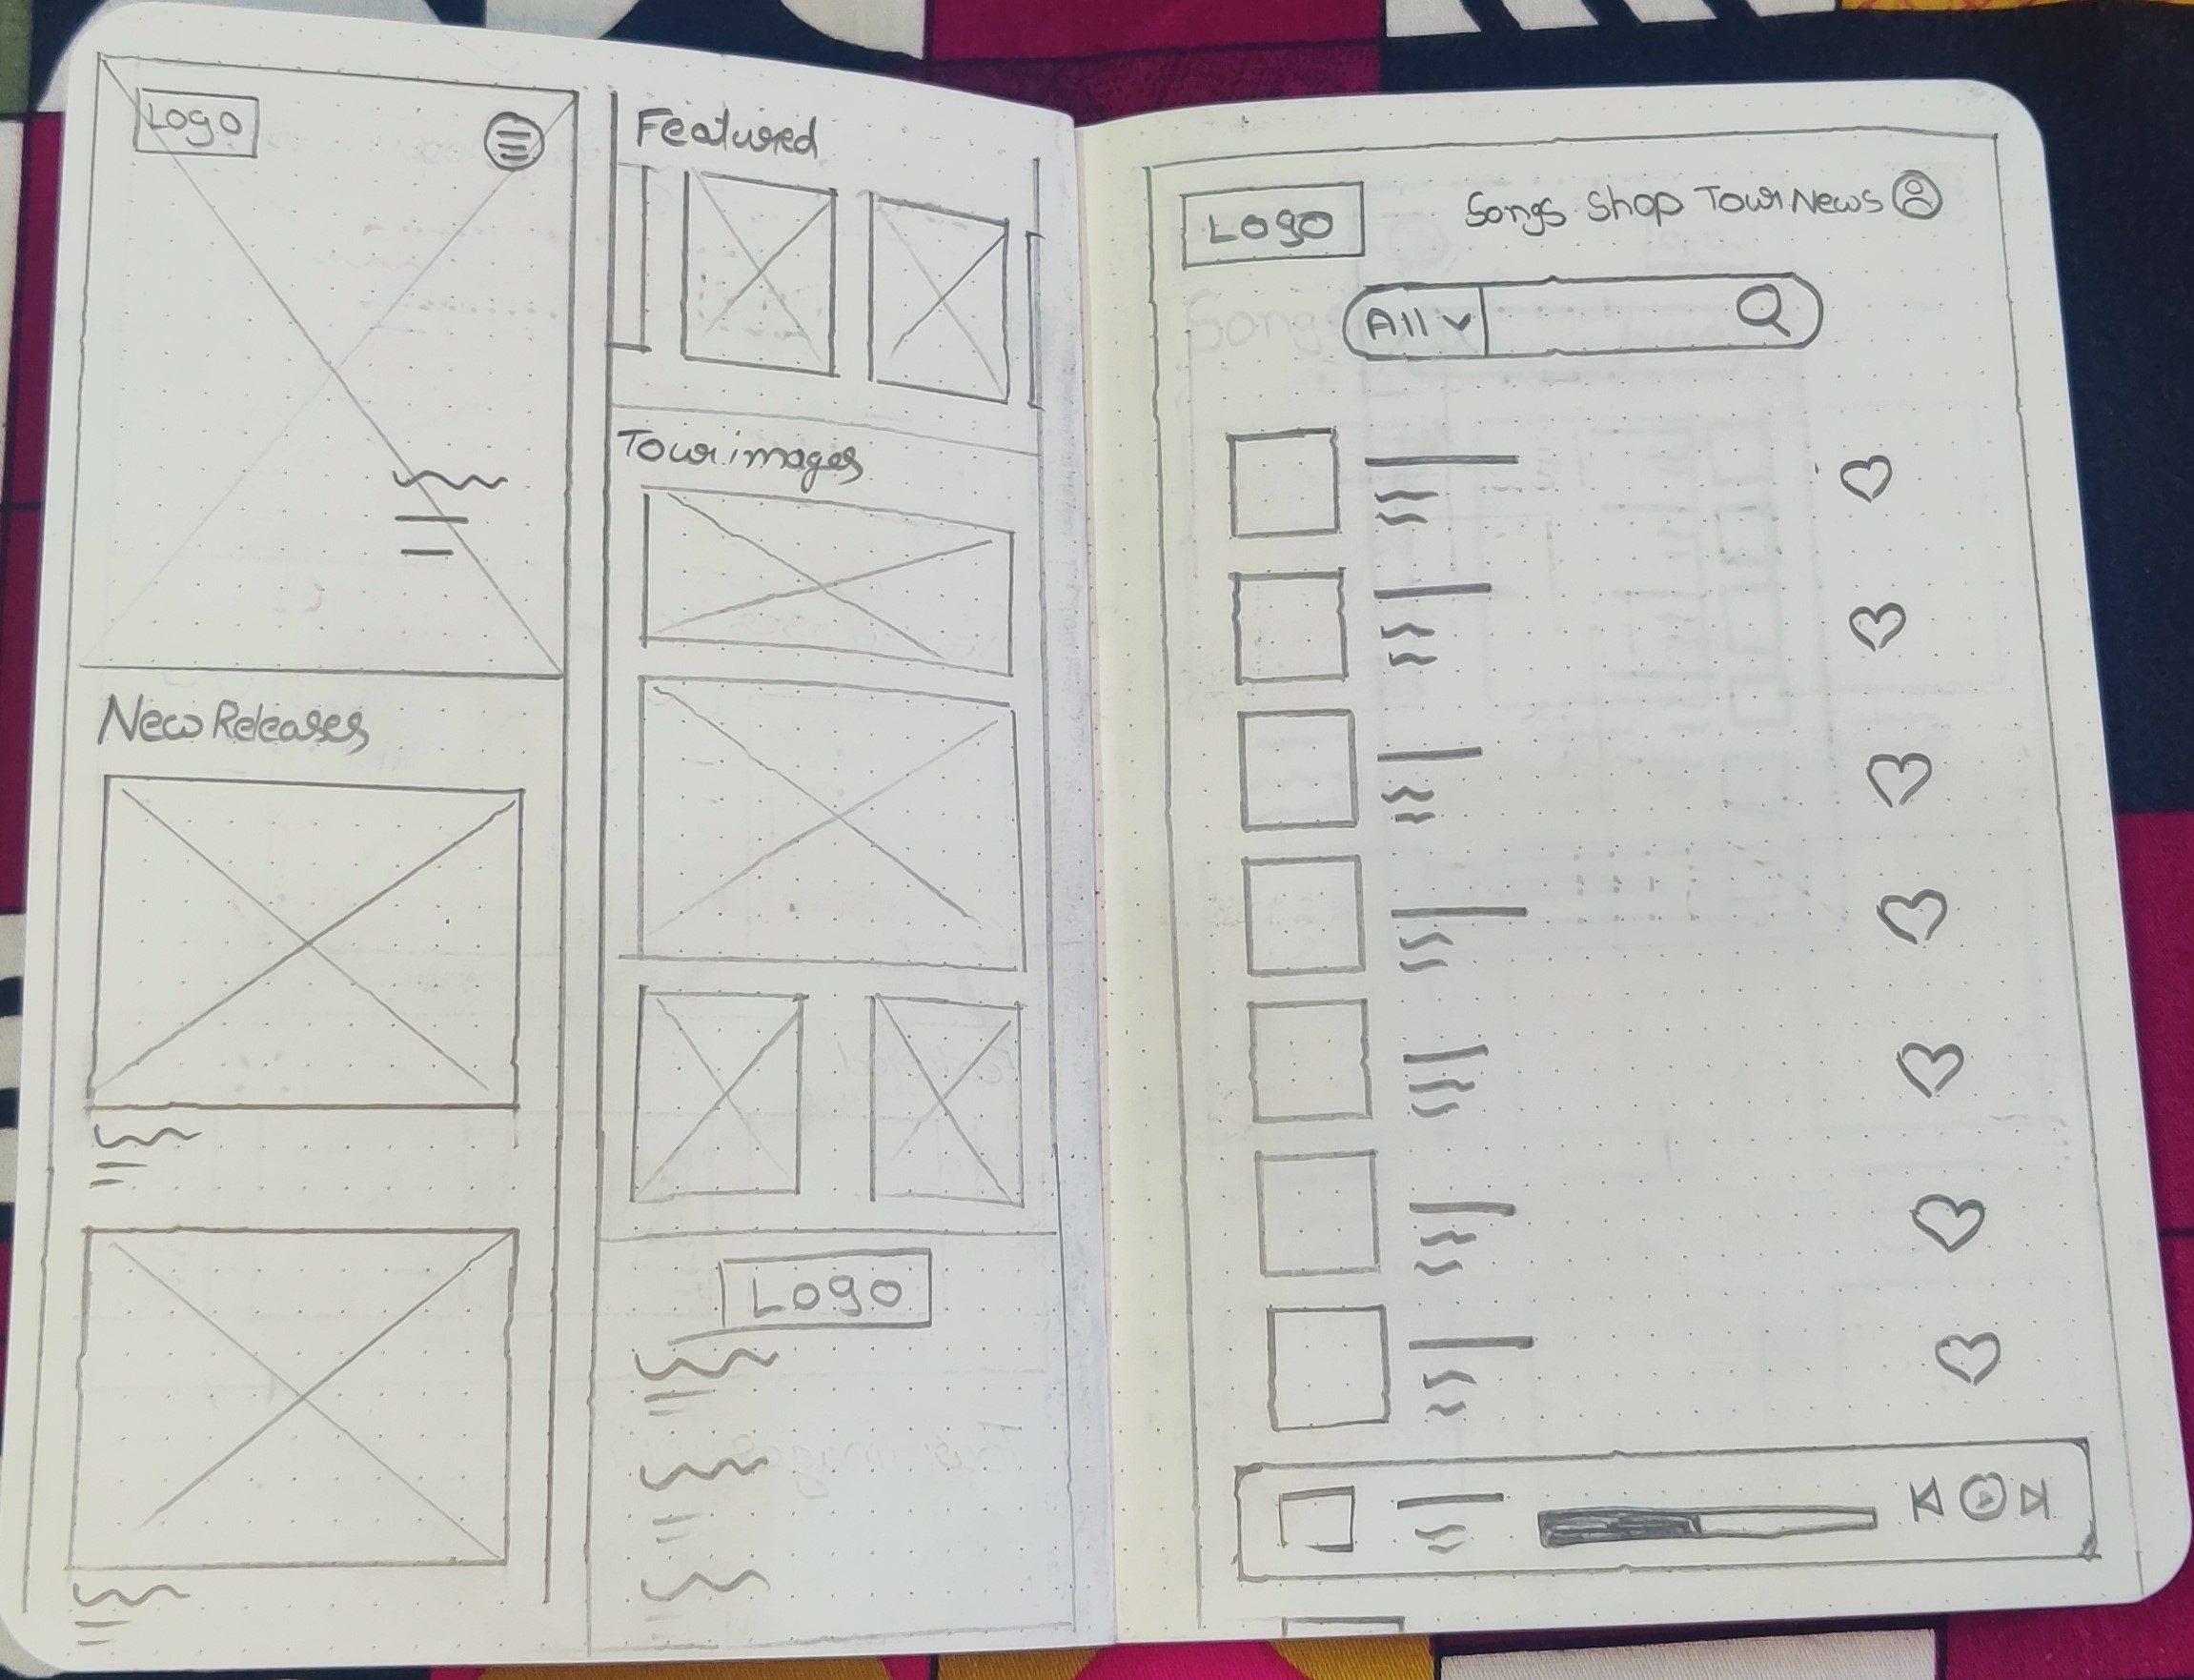 Logo
New Releases
Featured
Tour images
Logo
Logo
Songs Shop Tour News
All